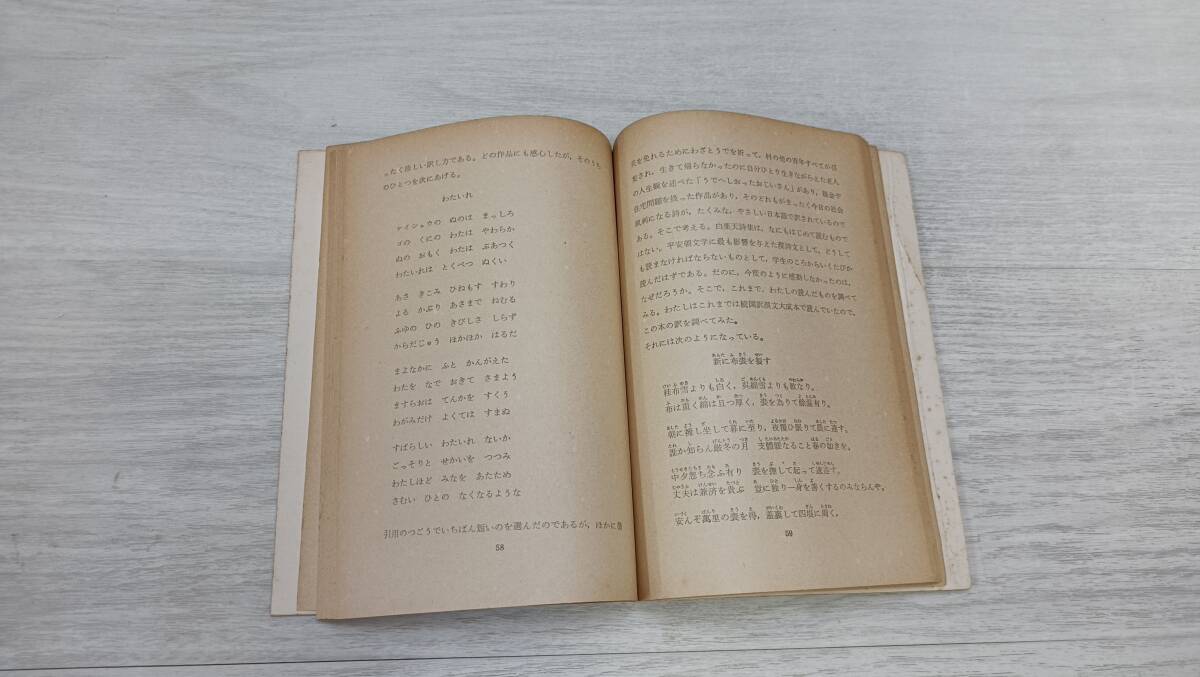 ったく珍しい訳し方である。どの作品にも感心したが，そのうち
のひとつを次にあげる。
わたいれ
ケイシュウの ぬのは まっしろ
ゴの くにの わたは やわらか
ぬの おもく わたは ぶあつく
わたいれは とくべつ ぬくい
あさ きこみ ひねもす すわり
よる かぶり あさまで ねむる
ふゆの ひの きびしさ しらず
からだじゅう ほかほか はるだ
まよなかに ふと かんがえた
わたを なで おきて さまよう
ますらおは てんかを すくう
わがみだけ よくては すまぬ
すばらしい わたいれ ないか
ごっそりと せかいを つつみ
わたしほど みなを あたため
さむい ひとの なくなるような
引用のつごうでいちばん短いのを選んだのであるが，ほかに
58
兵を免れるためにわざとうでを折って，村の他の青年すべてが召
集され，生きて帰らなかったのに自分ひとり生きながらえた老人
の人生観を述べた「うでへしおったおじいさん」があり，
住宅問題を扱った作品があり，そのどれもがまったく今日の社会
風刺になる詩が，たくみな，やさしい日本語で訳されているので
ある。そこで考える。白楽天詩集は，なにもはじめて読むもので
はない。平安朝文学に最も影響を与えた漢詩文として，どうして
も読まなければならないものとして，学生のころからいくたびか
読んだはずである。だのに，今度のように感動しなかったのは，
なぜだろうか。そこで，これまで，わたしの読んだものを調べて
みる。わたしはこれまでは続国訳漢文大成本で読んでいたので，
この本の訳を調べてみた。
それには次のようになっている。
新に布裘を製す
桂布雪よりも白く，呉綿雲よりも軟なり。
布は重く綿は且つ厚く，裘を為りて餘温有り。
朝に擁し坐して暮に至り，夜覆ひ眠りて晨に達す。
誰か知らん厳冬の月 支體暖なること春の如きを。
中夕忽ち念ふ有り 裘を撫して起って逡巡す。
丈夫は兼済を貴ぶ 豈に独り一身を善くするのみならんや。
安んぞ萬里の裘を得，蓋裹して四垠に周く，
59